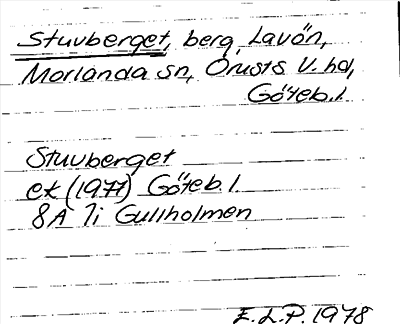 Stuvberget, berg, Lavön,
Morlanda sn, Orusts V. hd,
Göteb. l.
Stuvberget
ek (1977) Göteb. l.
8A 7i Gullholmen
E.L.P. 1978